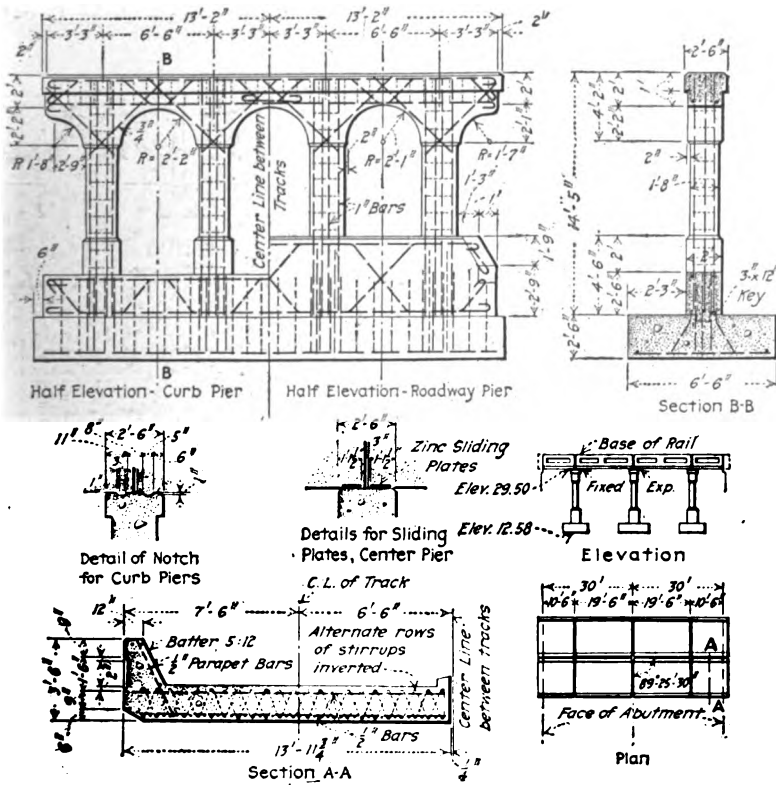 13'-2" 13'-2"
2" 3'-3" 6'-6" 3'-3" 3'-3" 6'-6" 3'-3" 2"
B
2'-2" 2'
R 1'-8" 2'-9"
R= 2'-2"
Center Line between
Tracks
2"
R= 2'-1"
R=1'-7"
1'-3"
1"
1" Bars
2'-1" 2'
6"
1'-9"
2'-9"
B
Half Elevation- Curb Pier
Half Elevation-Roadway Pier
2'-6"
1'
4'-2"
2'-2" 2'
2"
1'-8"
14'-5"
4'-6"
2'-6" 2'
2'
2'-3"
3"x12"
Key
2'-6"
6'-6"
Section B-B
11" 8" 2'-6" 5"
6"
1"
3"
1"
Detail of Notch
for Curb Piers
2'-6"
3"
1½" 1½"
Zinc Sliding
Plates
Details for Sliding
Plates, Center Pier
Base of Rail
Elev. 29.50
Fixed Exp.
Elev. 12.58
Elevation
C.L. of Track
12" 7'-6" 6'-6"
Batter 5:12
½" Parapet Bars
Alternate rows
of stirrups
inverted
Center Line
between tracks
9"
3'-6"
9"
6"
½" Bars
13'-11¾"
¼"
Section A-A
30' 30'
10'-6" 19'-6" 19'-6" 10'-6"
A
89°-25'-30"
Face of Abutment
A
Plan